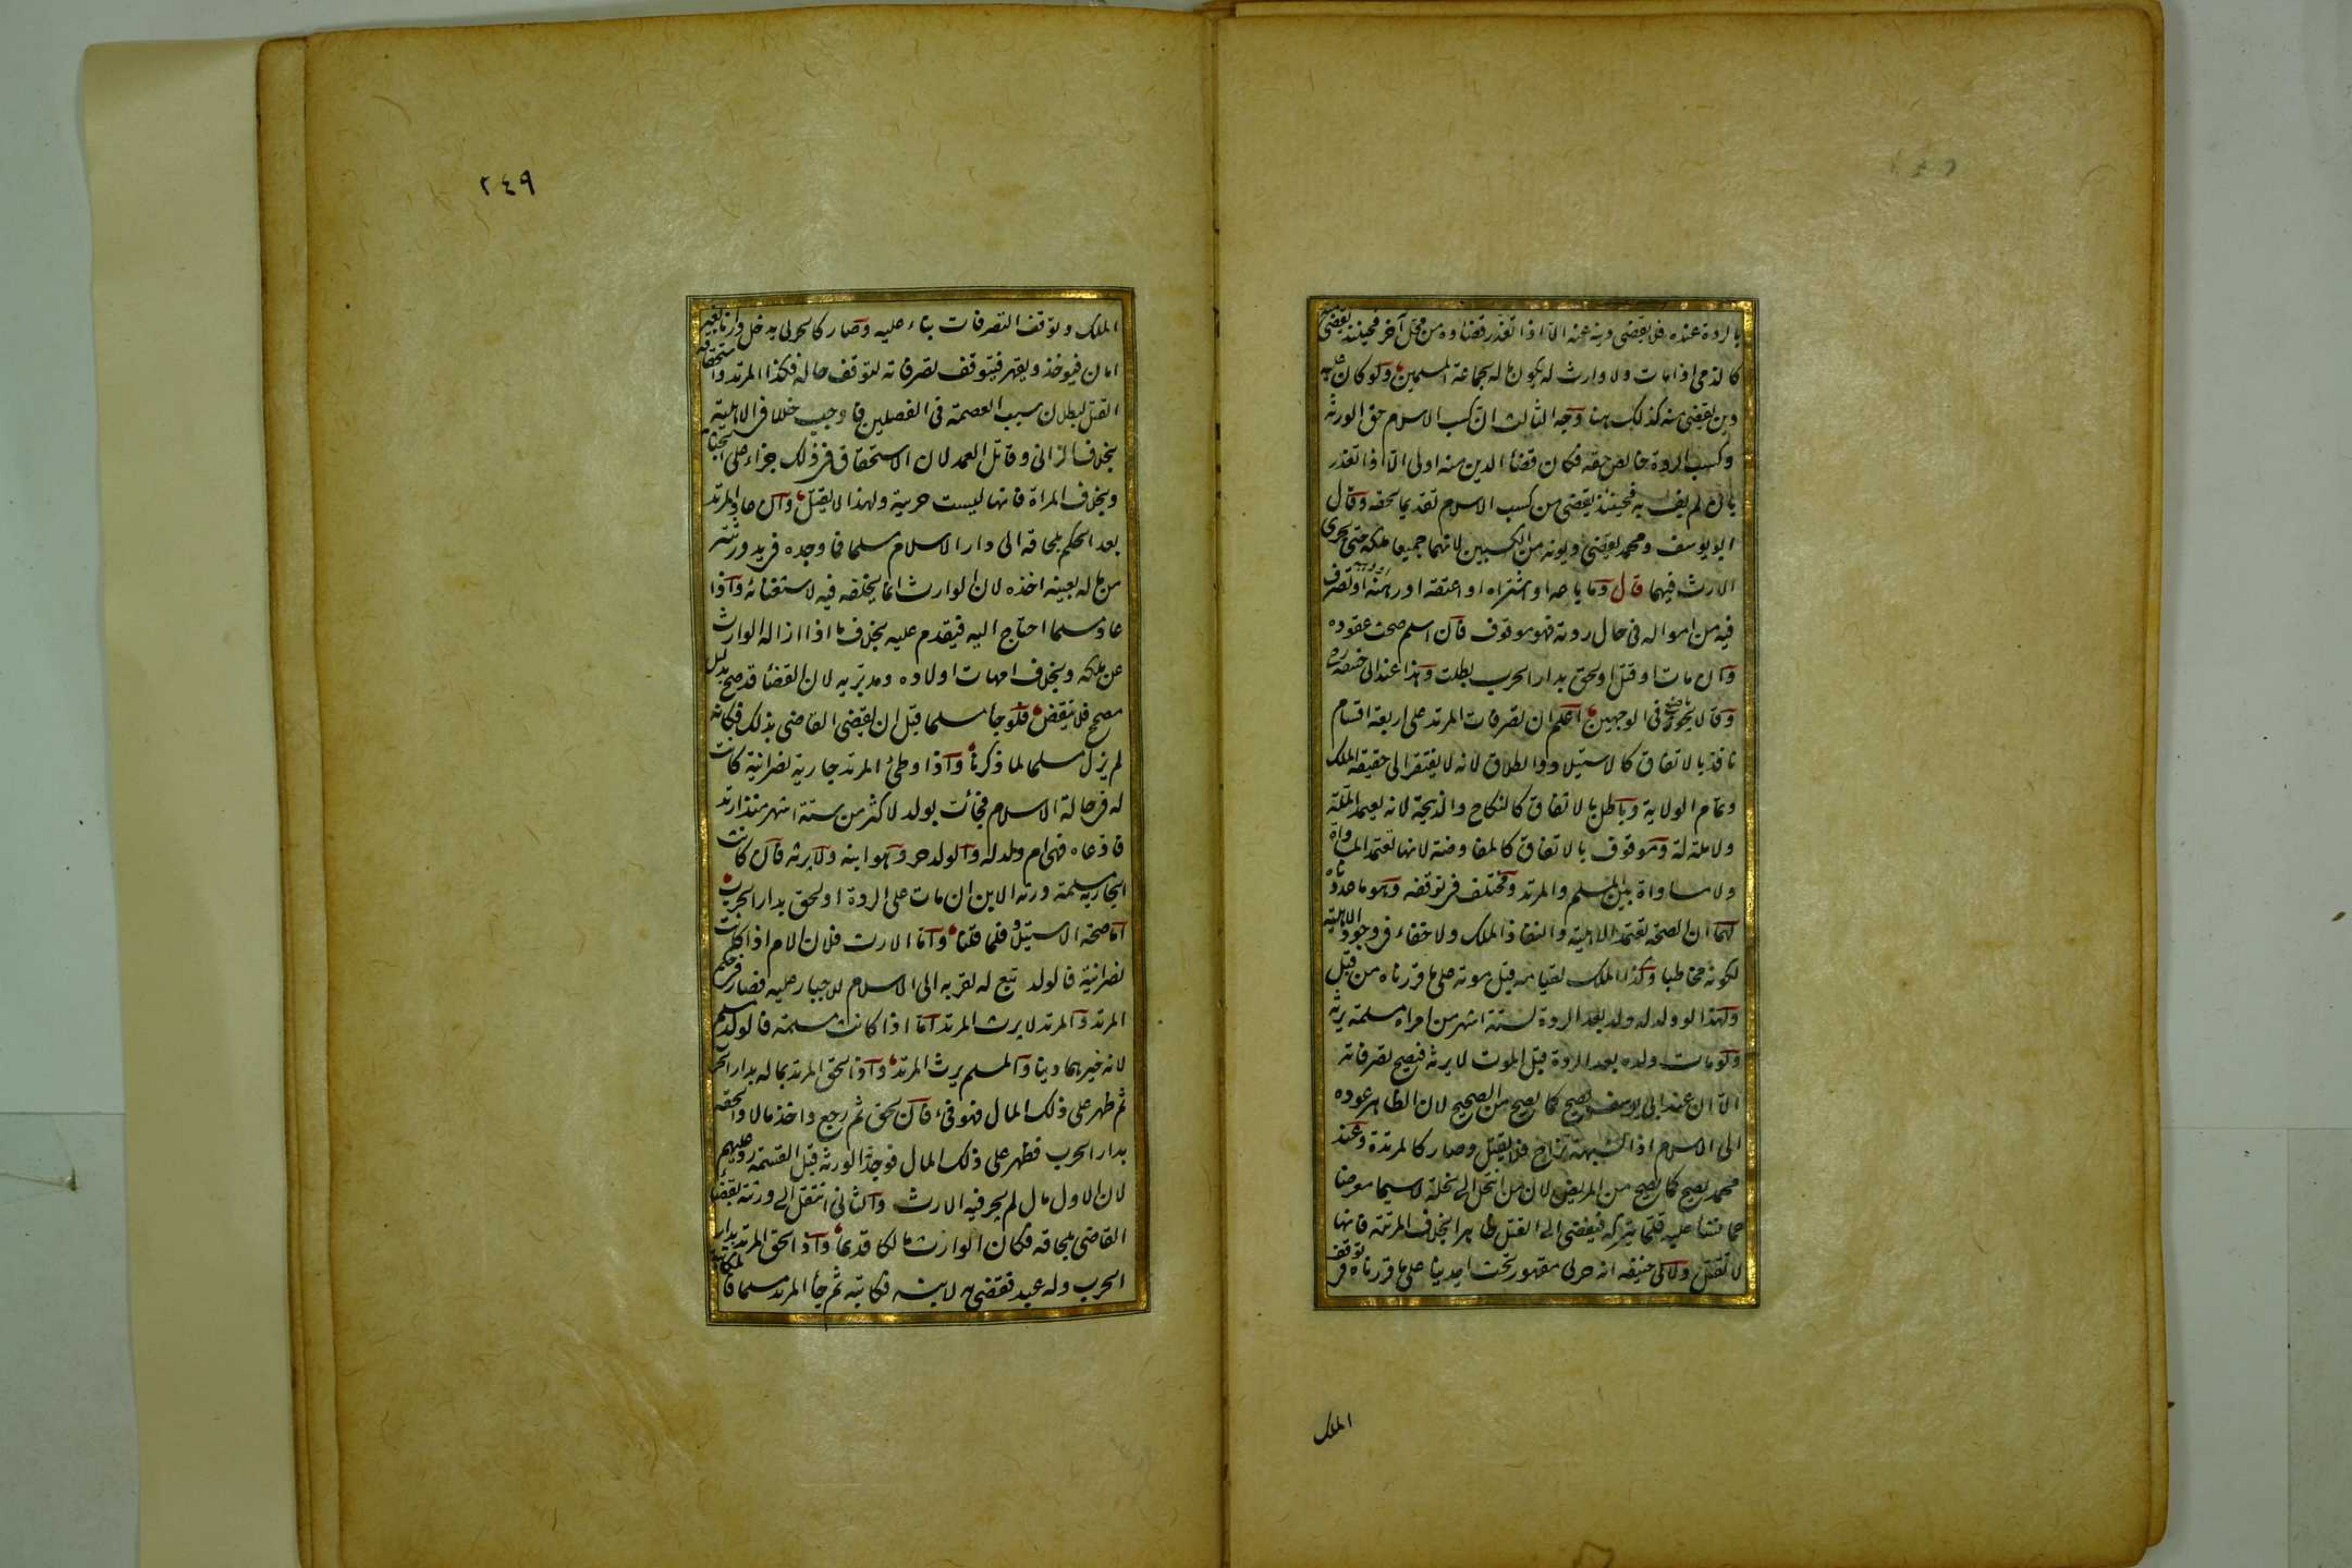 بالردة عنده فلا يقضى دينه عنه الا اذا تعذر قضاؤه من محل آخر فحينئذ يقضى منه
كالذمى اذا مات ولا وارث له يكون ماله لجماعة المسلمين ولو كان عليه
دين يقضى منه كذلك ههنا وجه الثالث ان كسب الاسلام حق الورثة
وكسب الردة خالص حقه فكان قضاء الدين منه اولى الا اذا تعذر
بان لم يف به فحينئذ يقضى من كسب الاسلام تقديما لحقه وقال
ابو يوسف ومحمد يقضى ديونه من الكسبين لانهما جميعا ملكه حتى يجرى
الارث فيهما قال وما باعه او اشتراه او اعتقه او رهنه او تصرف
فيه من امواله فى حال ردته فهو موقوف فان اسلم صحت عقوده
وان مات او قتل او لحق بدار الحرب بطلت وهذا عند ابى حنيفة رح
وقالا يجوز ما صنع فى الوجهين اعلم ان تصرفات المرتد على اربعة اقسام
نافذ بالاتفاق كالاستيلاد والطلاق لانه لا يفتقر الى حقيقة الملك
وتمام الولاية وباطل بالاتفاق كالنكاح والذبيحة لانه يعتمد الملة
ولا ملة له وموقوف بالاتفاق كالمفاوضة لانها تعتمد المساواة
ولا مساواة بين المسلم والمرتد ومختلف فى توقفه وهو ما عددناه
لهما ان الصحة تعتمد الاهلية والنفاذ الملك ولا خفاء فى وجود الاهلية
لكونه مخاطبا وكذا الملك لقيامه قبل موته على ما قررناه من قبل
ولهذا لو ولد له ولد بعد الردة لستة اشهر من امراة مسلمة يرثه
ولو مات ولده بعد الردة قبل الموت لا يرثه فيصح تصرفاته
الا ان عند ابى يوسف يصح كما يصح من الصحيح لان الظاهر عوده
الى الاسلام اذ الشبهة تزاح فلا يقتل وصار كالمرتدة وعند
محمد يصح كما يصح من المريض لان من انتحل الى نحلة لاسيما معرضا
عما نشأ عليه قلما يتركه فيفضى الى القتل ظاهرا بخلاف المرتدة فانها
لا تقتل ولابى حنيفة انه حربى مقهور تحت ايدينا على ما قررناه فى توقف
الملك
٢٤٩
الملك وتوقف التصرفات بناء عليه وصار كالحربى يدخل دارنا بغير
امان فيوخذ ويقهر فيتوقف تصرفاته لتوقف حاله فكذا المرتد واستحقاقه
القتل لبطلان سبب العصمة فى الفصلين فاوجب خللا فى الاهلية
بخلاف الزانى وقاتل العمد لان الاستحقاق فى ذلك جزاء على الجناية
وبخلاف المراة فانها ليست حربية ولهذا لا يقتل وان عاد المرتد
بعد الحكم بلحاقه الى دار الاسلام مسلما فما وجده فى يد ورثته
من ماله بعينه اخذه لان الوارث انما يخلفه فيه لاستغنائه واذا
عاد مسلما احتاج اليه فيقدم عليه بخلاف ما اذا ازاله الوارث
عن ملكه وبخلاف امهات اولاده ومدبريه لان القضأ قد صح بدليل
مصحح فلا ينقض فلو جا مسلما قبل ان يقضى القاضى بذلك فكانه
لم يزل مسلما لما ذكرنا واذا وطئ المرتد جارية نصرانية كانت
له فى حالة الاسلام فجائت بولد لاكثر من ستة اشهر منذ ارتد
فادعاه فهى ام ولد له والولد حر وهو ابنه ولا يرثه فان كانت
الجارية مسلمة ورثه الابن ان مات على الردة او لحق بدار الحرب
اما صحة الاستيلاد فلما قلنا واما الارث فلان الام اذا كانت
نصرانية فالولد تبع له لقربه الى الاسلام للاجبار عليه فصار فى حكم
المرتد والمرتد لا يرث المرتد اما اذا كانت مسلمة فالولد مسلم
لانه خيرهما دينا والمسلم يرث المرتد واذا لحق المرتد بماله بدار الحرب
ثم ظهر على ذلك المال فهو فىء فان لحق ثم رجع واخذ مالا والحقه
بدار الحرب فظهر على ذلك المال فوجدة الورثه قبل القسمة رد عليهم
لان الاول مال لم يجر فيه الارث والثانى انتقل الى ورثته بقضأ
القاضى بلحاقه فكان الوارث مالكا قديما واذا لحق المرتد بدار
الحرب وله عبد فقضى به لابنه فكاتبه ثم جأ المرتد مسلما فالمكاتبة